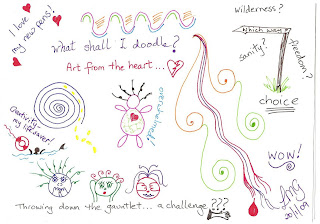 I love
my new pens!
what shall I doodle?
Art from the heart...
Wilderness?
which way
sanity?
freedom?
choice
overwhelmed!
Creativity
my lifesaver!
WOW!
20/1/09
Throwing down the gauntlet... a challenge???